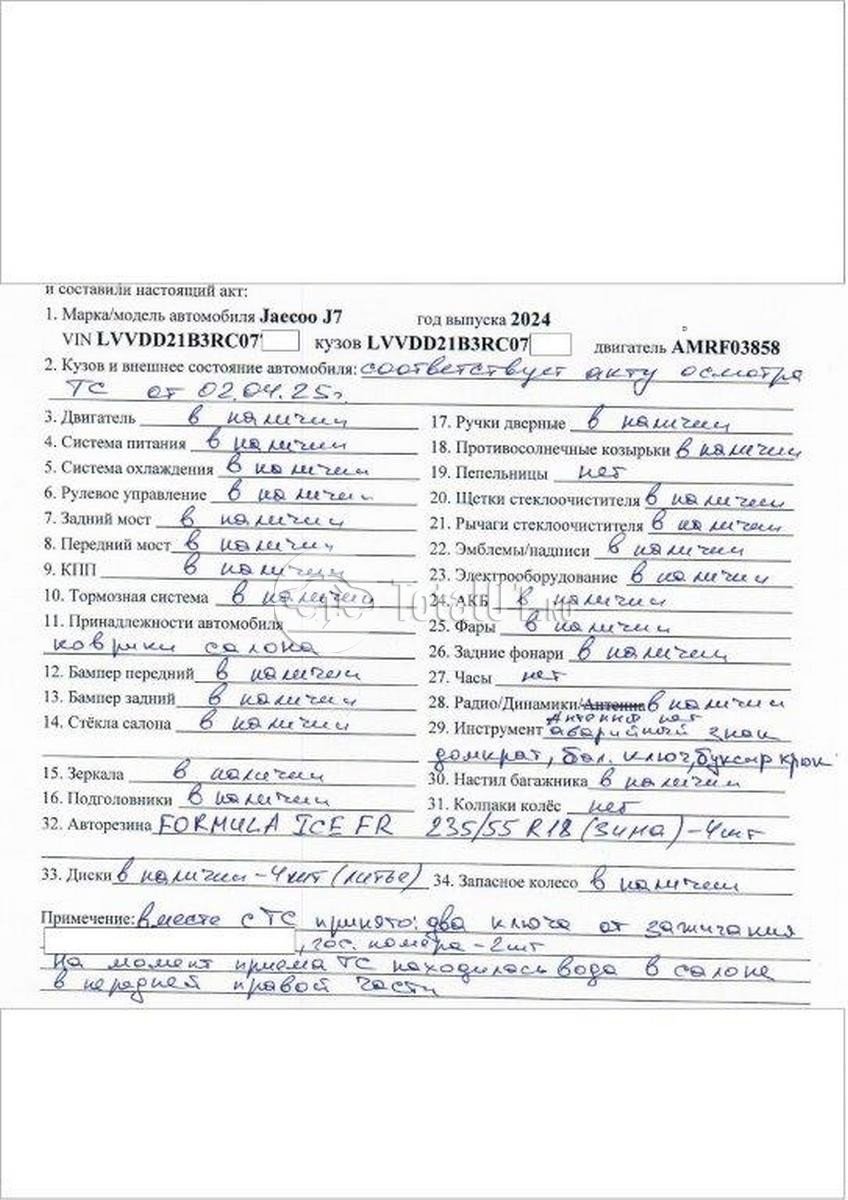 и составили настоящий акт:
1. Марка/модель автомобиля Jaecoo J7 год выпуска 2024
VIN LVVDD21B3RC07 кузов LVVDD21B3RC07 двигатель AMRF03858
2. Кузов и внешнее состояние автомобиля: соответствует акту осмотра
ТС от 02.04.25г.
3. Двигатель в наличии
4. Система питания в наличии
5. Система охлаждения в наличии
6. Рулевое управление в наличии
7. Задний мост в наличии
8. Передний мост в наличии
9. КПП в наличии
10. Тормозная система в наличии
11. Принадлежности автомобиля
коврики салона
12. Бампер передний в наличии
13. Бампер задний в наличии
14. Стёкла салона в наличии
15. Зеркала в наличии
16. Подголовники в наличии
17. Ручки дверные в наличии
18. Противосолнечные козырьки в наличии
19. Пепельницы нет
20. Щетки стеклоочистителя в наличии
21. Рычаги стеклоочистителя в наличии
22. Эмблемы/надписи в наличии
23. Электрооборудование в наличии
24. АКБ в наличии
25. Фары в наличии
26. Задние фонари в наличии
27. Часы нет
28. Радио/Динамики/Антенна в наличии
Антенна нет
29. Инструмент аварийный знак
домкрат, бал. ключ, буксир крюк
30. Настил багажника в наличии
31. Колпаки колёс нет
32. Авторезина FORMULA ICE FR 235/55 R18 (зима) - 4шт
33. Диски в наличии - 4шт (литье) 34. Запасное колесо в наличии
Примечение: вместе с ТС принято: два ключа от зажигания
, гос. номера - 2шт
На момент приема ТС находилась вода в салоне
в передней правой части
TotalUT.RU